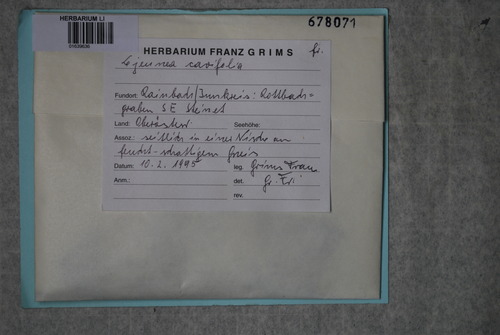 HERBARIUM LI
678071
HERBARIUM FRANZ GRIMS fr.
Lejeunea cavifolia
Fundort: Rainbach/Innkreis:
graben SE Steinet
Land: Oberösterr. Seehöhe:
Assoz.: seitlich in einer Nische an
feucht-schattigem Gneis
Datum: 10.2.1995 leg. Grims Franz
Anm.: det. Gr. Fr.
rev.